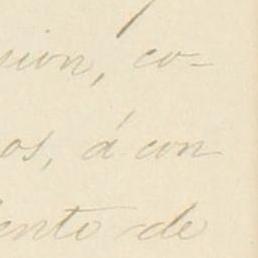 sion, co-
os, á con
ento de